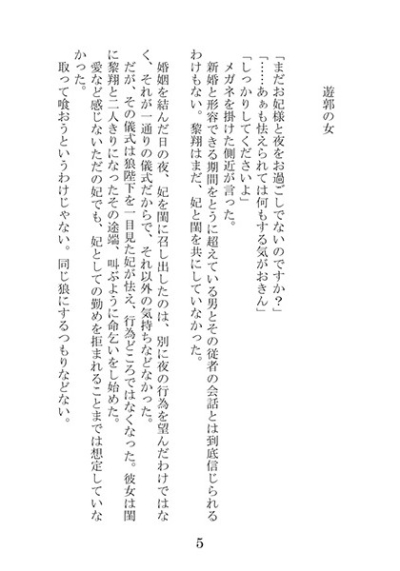 遊郭の女
「まだお妃様と夜をお過ごしでないのですか？」
「……あぁも怯えられては何もする気がおきん」
「しっかりしてくださいよ」
メガネを掛けた側近が言った。
新婚と形容できる期間をとうに超えている男とその従者の会話とは到底信じられる
わけもない。黎翔はまだ、妃と閨を共にしていなかった。
婚姻を結んだ日の夜、妃を閨に召し出したのは、別に夜の行為を望んだわけではな
く、それが一通りの儀式だからで、それ以外の気持ちなどなかった。
だが、その儀式は狼陛下を一目見た妃が怯え、行為どころではなくなった。彼女は閨
に黎翔と二人きりになったその途端、叫ぶように命乞いをし始めた。
愛など感じないただの妃でも、妃としての勤めを拒まれることまでは想定していな
かった。
取って喰おうというわけじゃない。同じ狼にするつもりなどない。
5